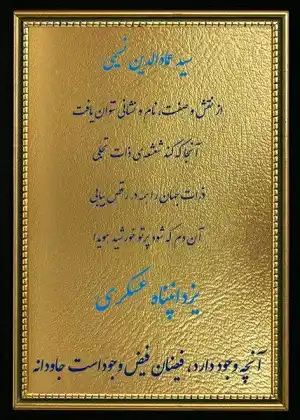 سید عمادالدین نسیمی
از نقش و صفت، نام و نشانی نتوان یافت
آنجا که کند شعشعه‌ی ذات تجلی
ذرات جهان را همه در رقص بیابی
آن دم که شود پرتو خورشید هویدا
یزدانپناه عسکری
آنچه وجود دارد، فیضان فیض وجود است جاودانه